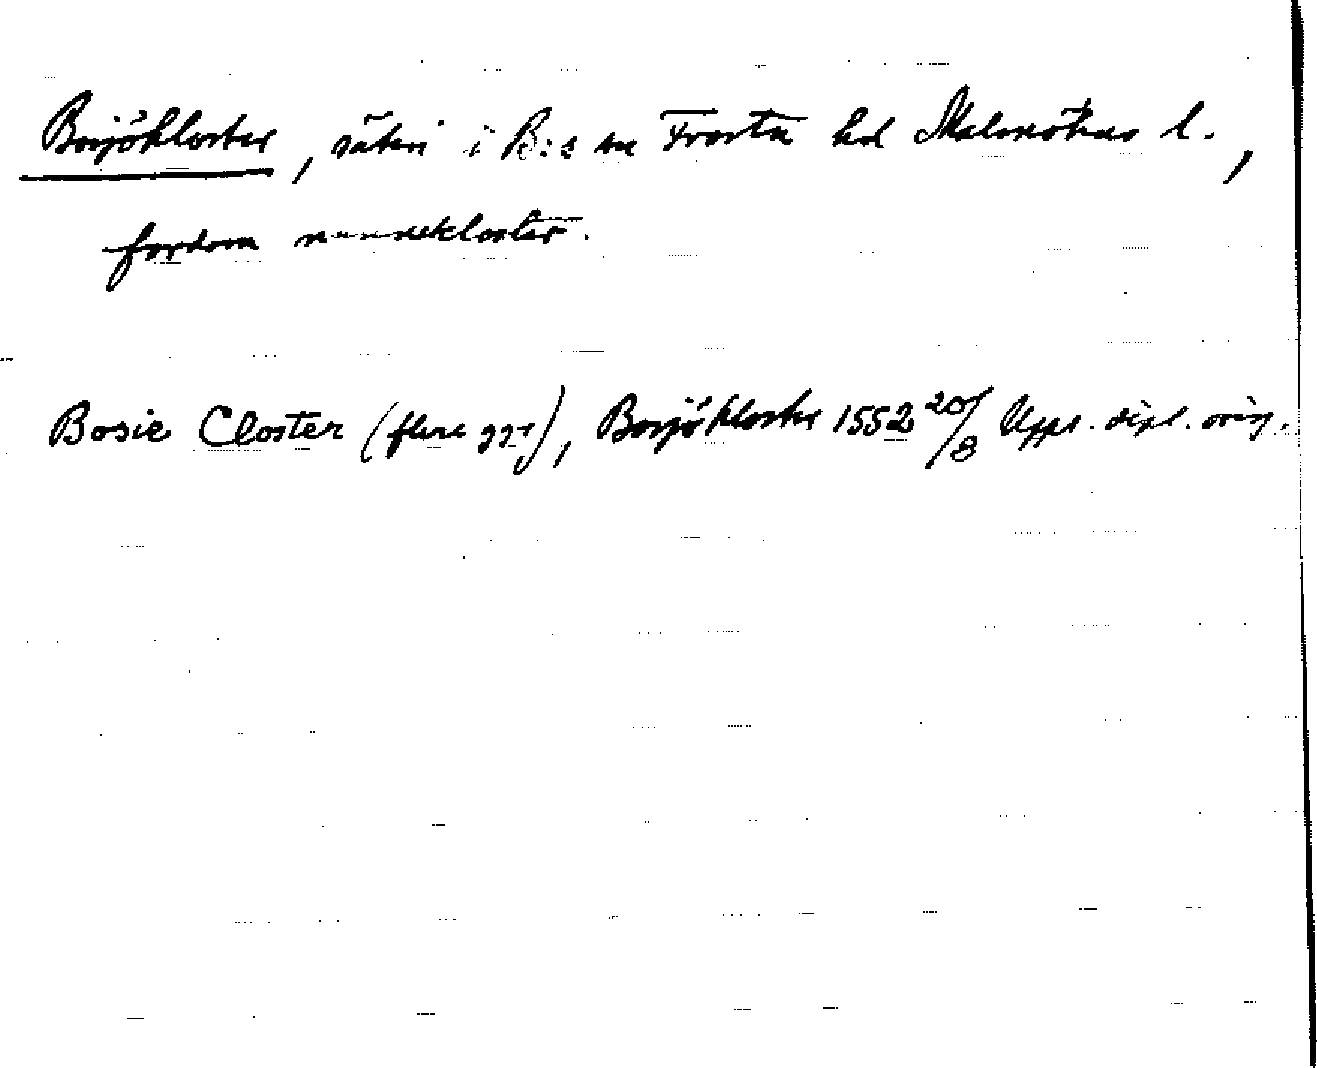 Bosjökloster, säteri i B:s sn Frosta hd Malmöhus l.,
fordom nunnekloster.
Bosie Closter (flere ggr), Bosjökloster 1552 20/8 Uppl. dipl. orig.